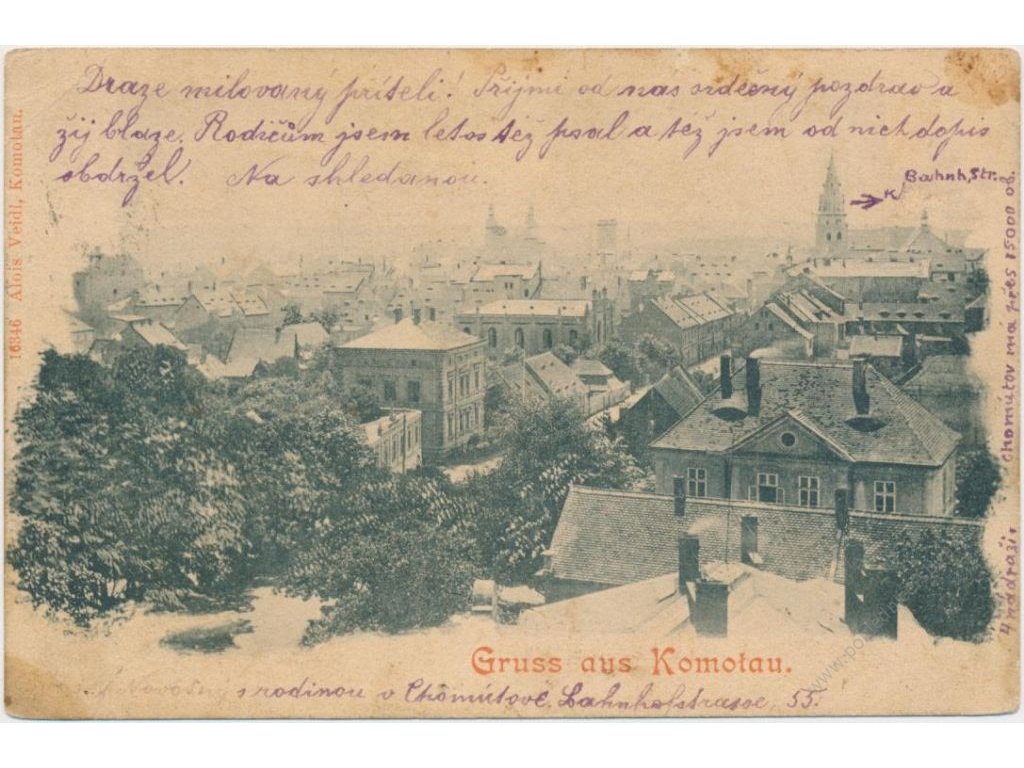 Draze milovaný příteli! Přijmi od nás srdečný pozdrav a
žij blaze. Rodičům jsem letos též psal a též jsem od nich dopis
obdržel. Na shledanou.
Bahnh. Str.
16346 Alois Veidl, Komotau.
Chomútov má přes 15000 ob.
4 nádraží.
Gruss aus Komotau.
Novotný s rodinou v Chomútově. Bahnhofstrasse, 55.